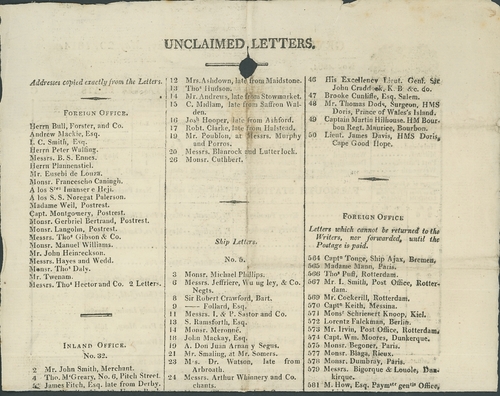 UNCLAIMED LETTERS.
Addresses copied exactly from the Letters.
FOREIGN OFFICE.
Herrn Bull, Forster, and Co.
Andrew Mackle, Esq.
I. C. Smith, Esq.
Herrn Peter Walling.
Messrs. B. S. Ennes.
Herrn Plannenstiel.
Mr. Eusebi de Loura.
Monsr. Francescho Caningh.
A los Srs Imanser e Heji.
A los S. S. Noregat Palerson.
Madame Weil, Postrest.
Capt. Montgomery, Postrest.
Monsr. Goebriel Bertrand, Postrest.
Monsr. Langolm, Postrest.
Messrs. Thos Gibson & Co.
Monsr. Manuel Williams.
Mr. John Heinreckson.
Messrs. Hayes and Wedd.
Monsr. Thos Daly.
Mr. Twenam.
Messrs. Thos Hector and Co. 2 Letters.
INLAND OFFICE.
No. 32.
2 Mr. John Smith, Merchant.
4 Thos. McGreary, No. 6, Pitch Street.
James Fitch, Esq. late from Derby.
12 Mrs. Ashdown, late from Maidstone.
13 Thos Hudson.
14 Mr. Andrews, late from Stowmarket.
15 C. Midlam, late from Saffron Walden.
16 Josh Hooper, late from Ashford.
17 Robt. Clarke, late from Halstead.
19 Mr. Poulton, at Messrs. Murphy
and Porros.
20 Messrs. Blannock and Lutterlock.
26 Monsr. Cuthbert.
Ship Letters.
No. 5.
3 Monsr. Michael Phillips.
6 Messrs. Jeffriere, and Co.
Negts.
8 Sir Robert Crawford, Bart.
9 —— Follard, Esq.
11 Messrs. I. & P. Sastor and Co.
13 S. Ramsforth, Esq.
14 Monsr. Meroumé.
18 John Mackay, Esq.
19 A. Don Juan Arnau y Segus.
21 Mr. Smaling, at Mr. Somers.
23 Mrs. D. Watson, late from
Arbroath.
24 Messrs. Arthur Whinnery and Co.
chants.
46 His Excellency Lieut. Genl. Sir
John Craddock, K. B &c. &c.
47 Brooke Cunliffe, Esq. Salem.
48 Mr. Thomas Dods, Surgeon, HMS
Doris, Prince of Wales's Island.
49 Captain Martin Hilhouse, HM Bourbon
Regt. Maurice, Bourbon.
50 Lieut. James Davis, HMS Doris,
Cape Good Hope.
FOREIGN OFFICE
Letters which cannot be returned to the
Writers, nor forwarded, until the
Postage is paid.
564 Captn Tonge, Ship Ajax, Bremen.
565 Madame Mann, Paris.
566 Thos Poll, Rotterdam.
567 Mr. I. Smith, Post Office, Rotterdam.
569 Mr. Cockerill, Rotterdam.
570 Captn Keith, Messina.
571 Monsr Schriesert Knoop, Kiel.
572 Lorentz Falckman, Berlin.
573 Mr. Irvin, Post Office, Rotterdam.
574 Capt. Wm. Moores, Dunkerque.
575 Monsr. Begoner, Paris.
577 Monsr. Blaga, Rioux.
578 Monsr. Dumbray, Paris.
579 Messrs. Bigorque & Louole, Dunkirque.
581 M. How, Esq. Paymstr genl's Office,